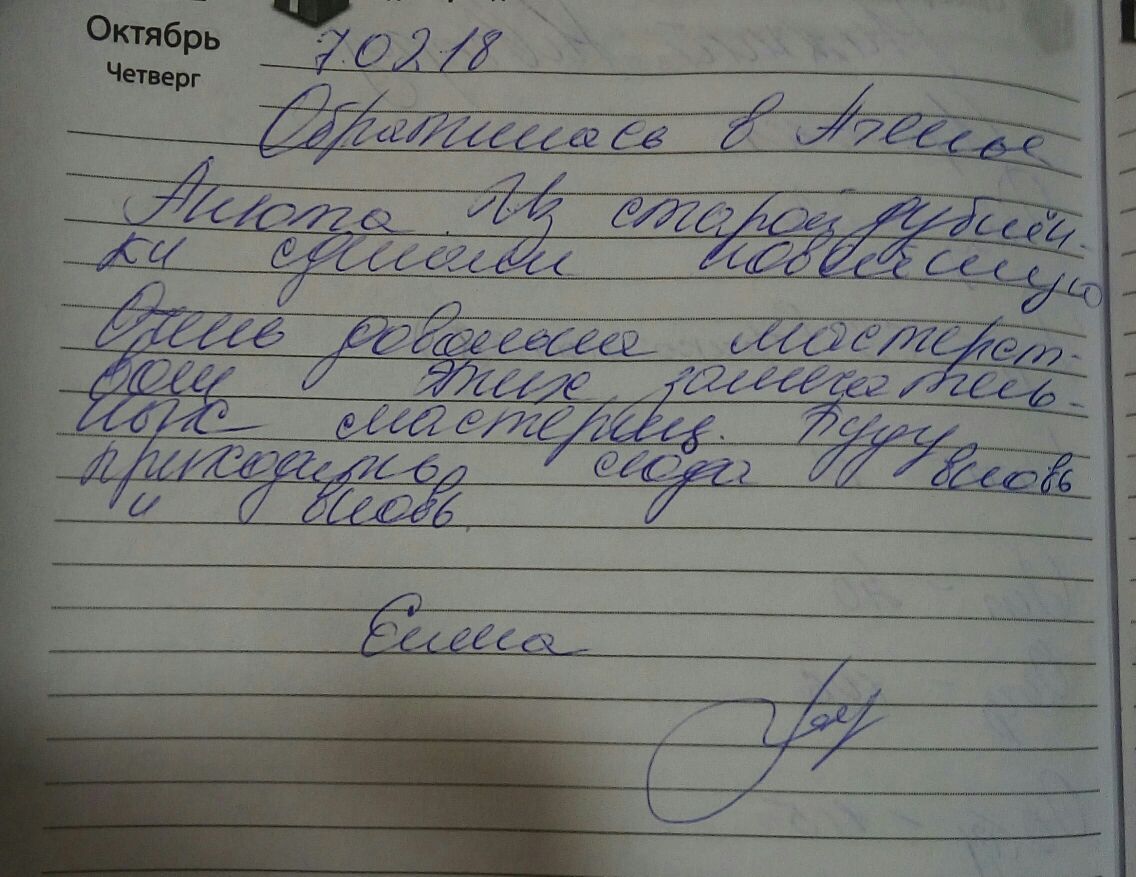 Октябрь
Четверг
7.02.18
Обратилась в Ателье
Анюта. Из старой дублён-
ки сделали новейшую
Очень довольна мастерст-
вом этих замечатель-
ных мастериц. Буду
приходить сюда вновь
и вновь.